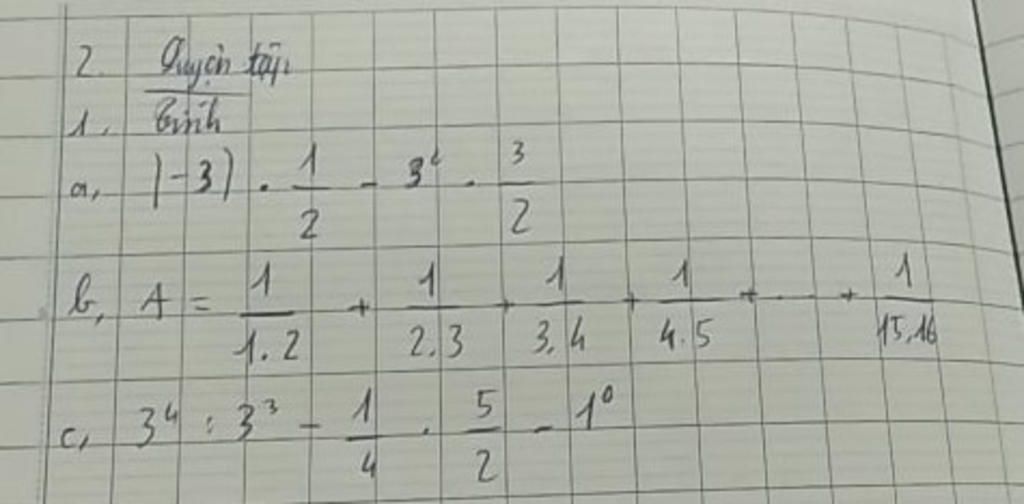 2. Luyện tập
1. Tính
a, |-3| . 1/2 - 3² . 3/2
b, A = 1/1.2 + 1/2.3 + 1/3.4 + 1/4.5 + ... + 1/15.16
c, 3⁴ : 3³ - 1/4 . 5/2 - 1⁰